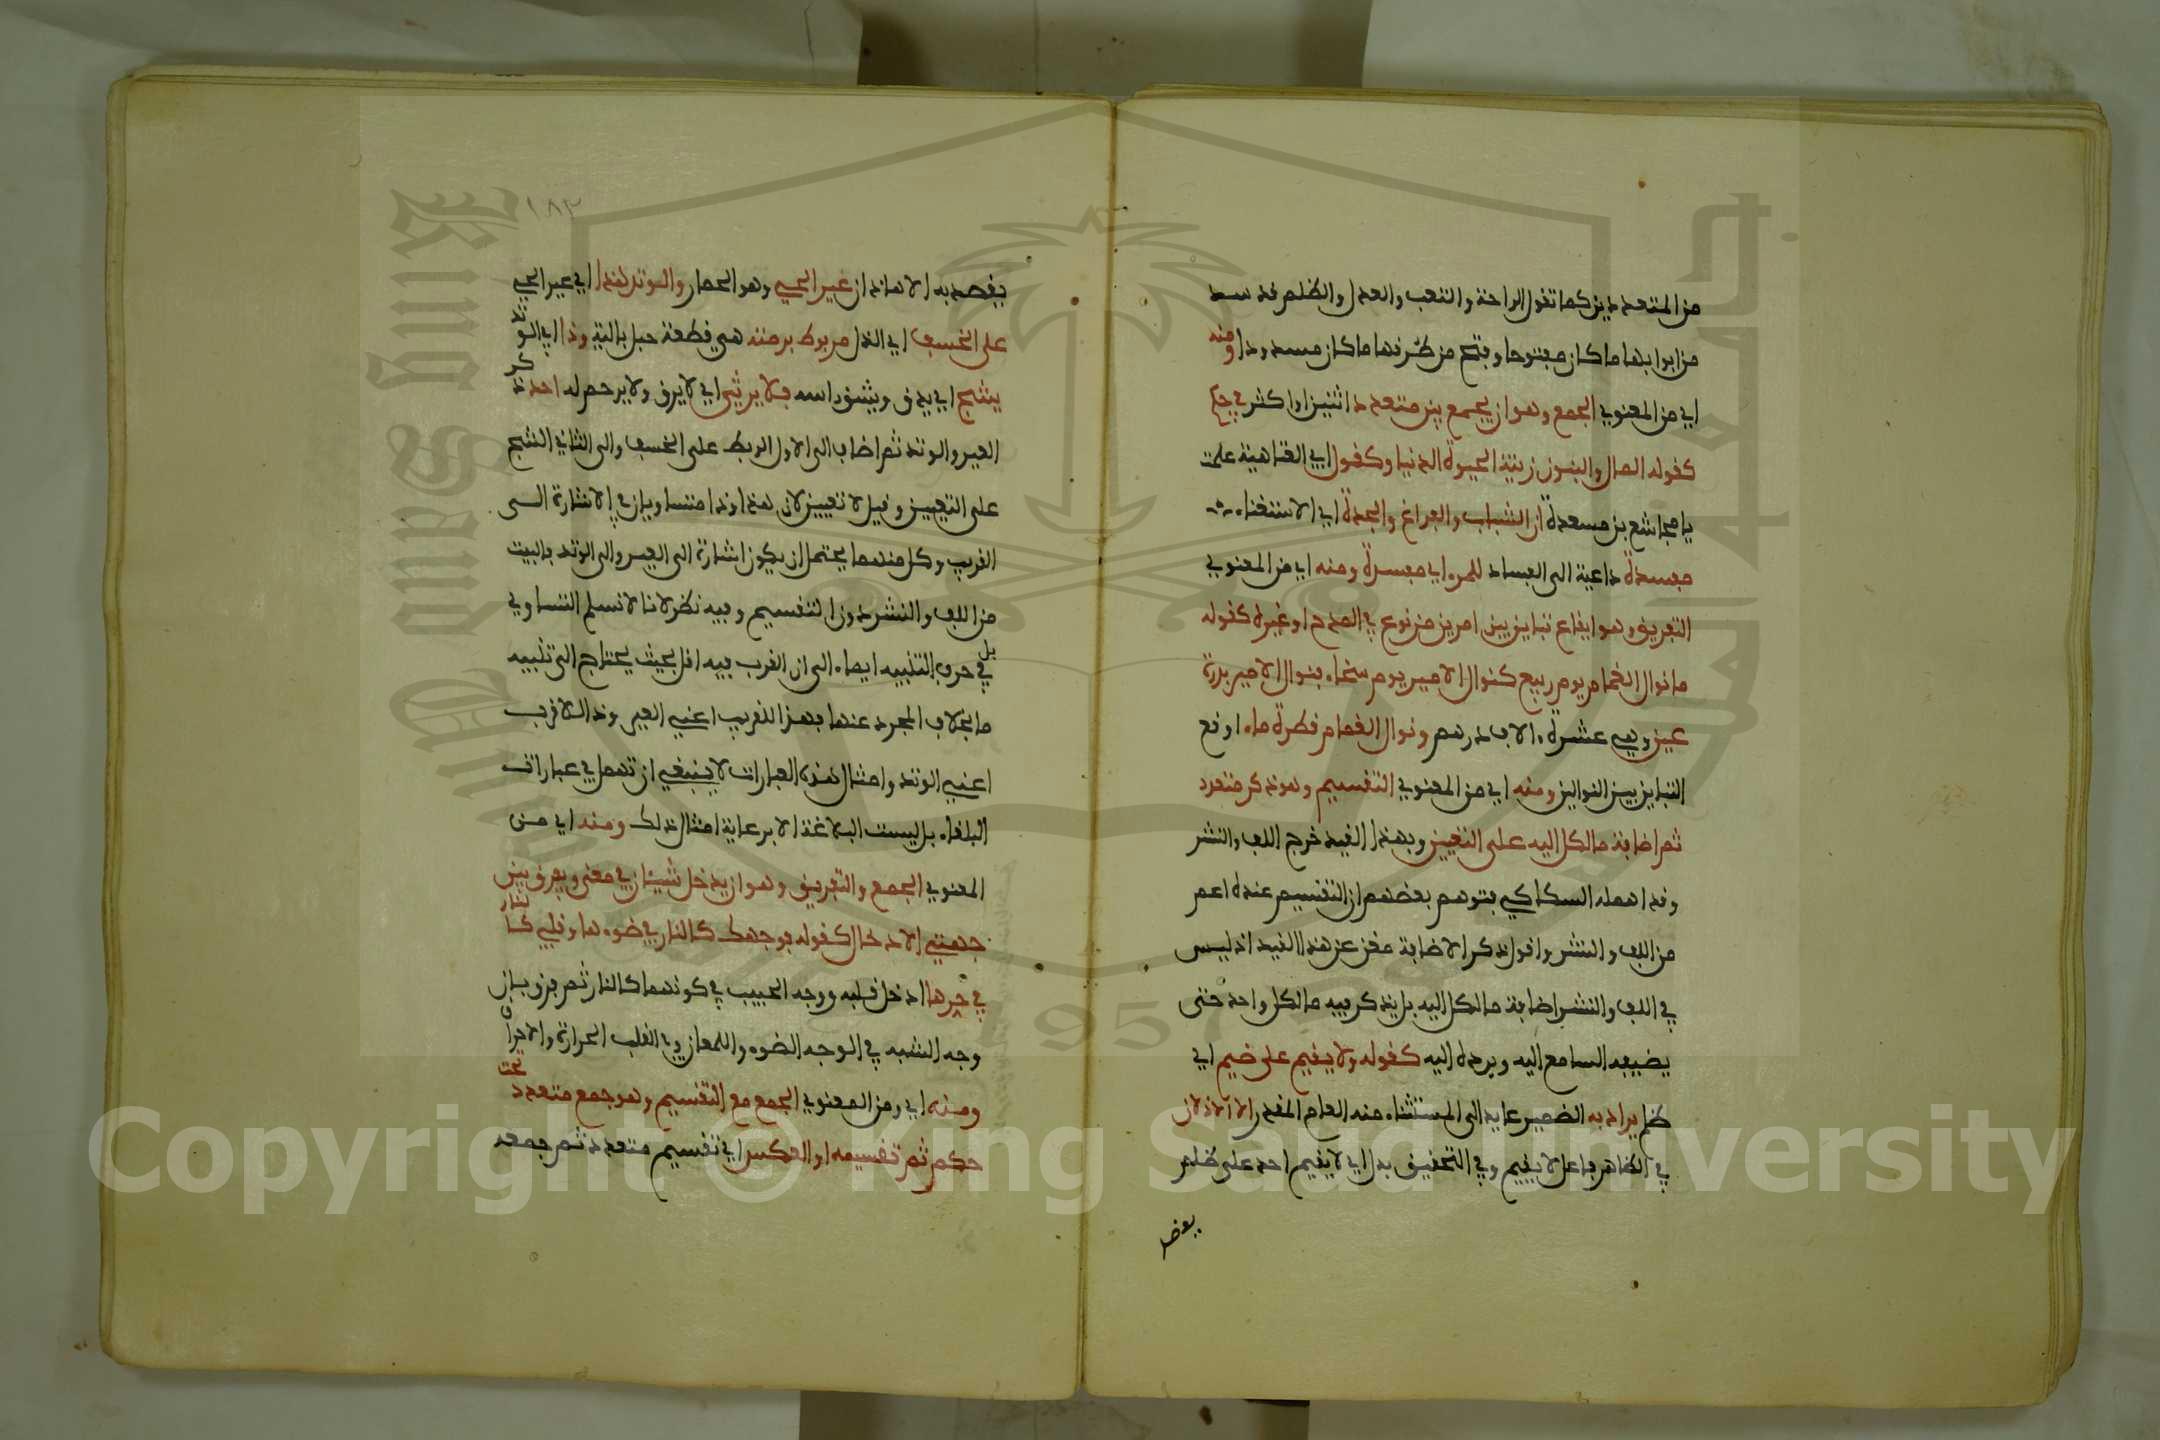 من المتعددين كما تقول الراحة والتعب والعدل والظلم قد سد
من ابوابها ما كان مفتوحا وفتح من طرفها ما كان مسدودا ومنه
اي من المعنوي الجمع وهو ان يجمع بين متعدد اثنين او اكثر في حكم
كقوله المال والبنون زينة الحيوة الدنيا وكقول ابي العتاهية علمت
يا مجاشع بن مسعدة ان الشباب والفراغ والجدة اي الاستغناء
مفسدة داعية الى الفساد للمرء اي مفسدة ومنه اي من المعنوي
التفريق وهو ايقاع تباين بين امرين من نوع في المدح او غيره كقوله
ما نوال الغمام يوم ربيع كنوال الامير يوم سخاء فنوال الامير بدرة
عين وهي عشرة الاف درهم ونوال الغمام قطرة ماء اوقع
التباين بين النوالين ومنه اي من المعنوي التقسيم وهو ذكر متعدد
ثم اضافة ما لكل اليه على التعيين وبهذا القيد خرج اللف والنشر
وقد اهمله السكاكي فتوهم بعضهم ان التقسيم عنده اعم
من اللف والنشر واقول ذكر الاضافة مغن عن هذا القيد اذ ليس
في اللف والنشر اضافة ما لكل اليه بل يذكر فيه ما لكل واحد حتى
يضيفه السامع اليه ويرده اليه كقوله ولا يقيم على ضيم اي
ظلم يراد به الضمير عايد الى المستثناء منه العام المقدر الا الاذلان
في الظاهر فاعل لا يقيم وفي التحقيق بدل اي لا يقيم احد على ظلم
يقصد
يقصد به الا هاذان عير الحي وهو الحمار والوتد هذا اي عير الحي
على الخسف اي الذل مربوط برمته هي قطعة حبل بالية وذا اي الوتد
يشج اي يدق ويشق راسه فلا يرثي اي لا يرق ولا يرحم له احد ذكر
العير والوتد ثم اضاف الى الاول الربط على الخسف والى الثاني الشج
على التعيين وقيل لا تعيين لان هذا وذا متساويان في الاشارة الى
القريب وكل منهما يحتمل ان يكون اشارة الى العير والى الوتد فالبيت
من اللف والنشر دون التقسيم وفيه نظر لانا لا نسلم التساوي
بل في حرف التنبيه ايماء الى ان القرب فيه اقل بحيث يحتاج الى تنبيه
ما بخلاف المجرد عنها فهذا للقريب اعني العير وذا للاقرب
اعني الوتد وامثال هذه العبارات لا ينبغي ان تهمل في عبارات
البلغاء بل ليست البلاغة الا برعاية امثال ذلك ومنه اي من
المعنوي الجمع والتفريق وهو ان يدخل شيئان في معنى ويفرق بين
جهتي الادخال كقوله فوجهك كالنار في ضوءها وقلبي كالنار
في حرها ادخل قلبه ووجه الحبيب في كونهما كالنار ثم فرق بان
وجه الشبه في الوجه الضوء واللمعان وفي القلب الحرارة والاحراق
ومنه اي ومن المعنوي الجمع مع التقسيم وهو جمع متعدد تحت
حكم ثم تقسيمه او العكس اي تقسيم متعدد ثم جمعه
١٨٣
Copyright © King Saud University
King Saud University
1957